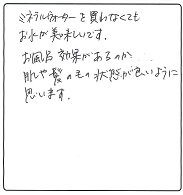 ミネラルウォーターを買わなくても
お水が美味しいです。
お風呂効果があるのか
肌や髪の毛の状態が良いように
思います。